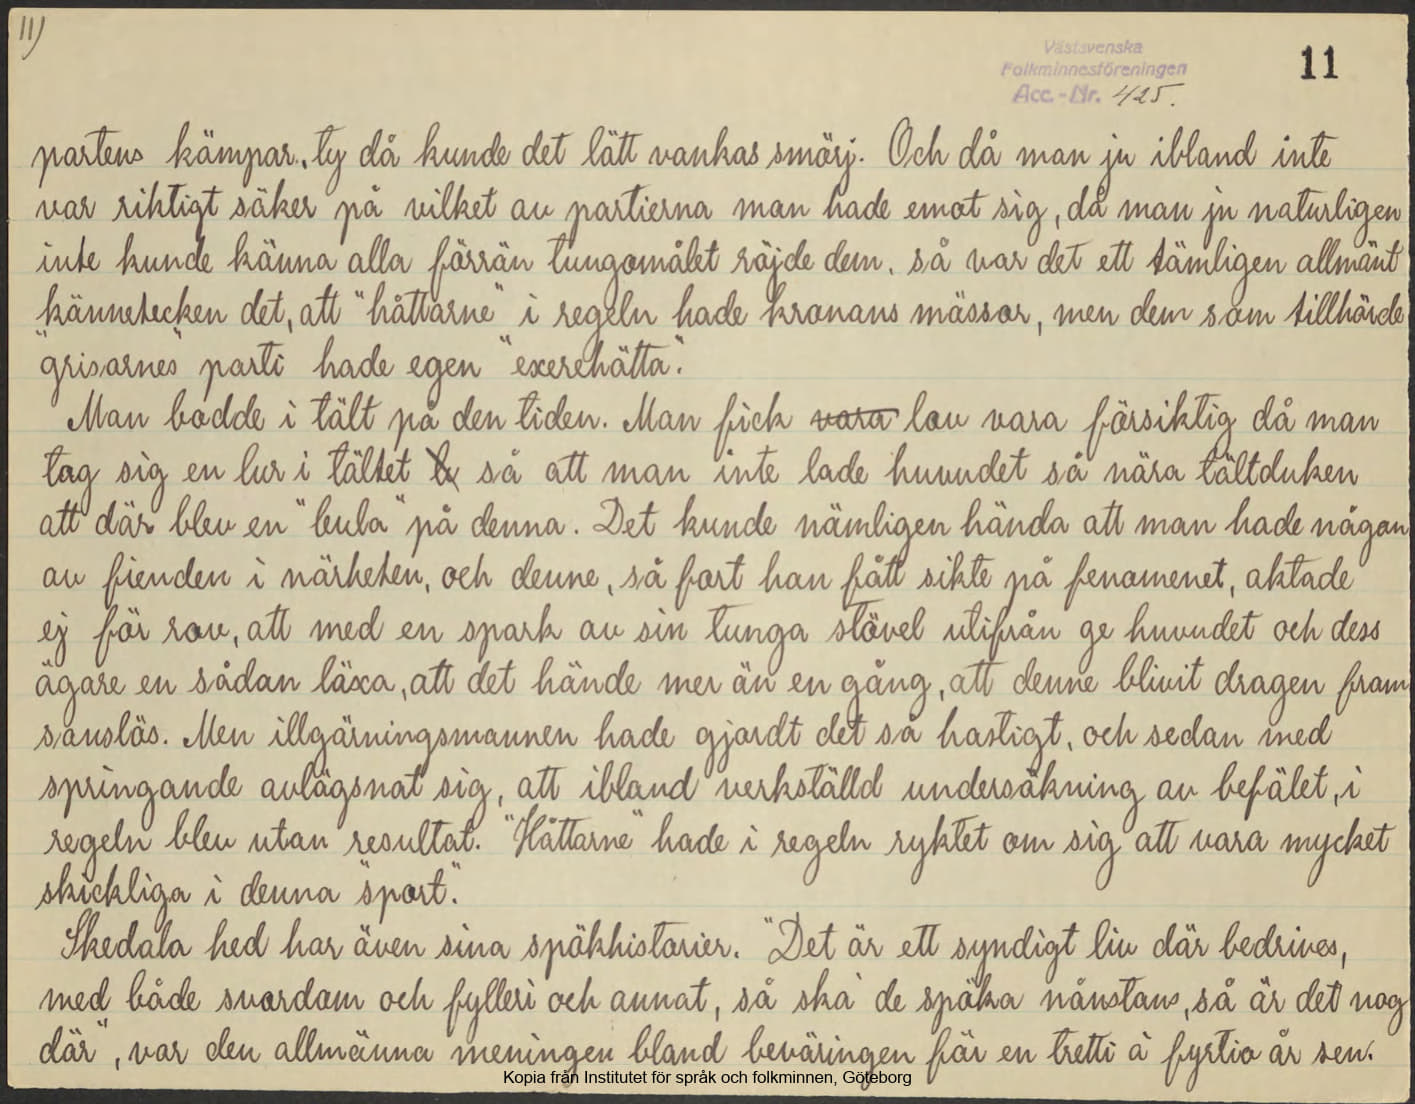 11)
Västsvenska
Folkminnesföreningen
Acc.-Nr. 425.
11
partens kämpar, ty då kunde det lätt vankas smörj. Och då man ju ibland inte
var riktigt säker på vilket av partierna man hade emot sig, då man ju naturligen
inte kunde känna alla förrän tungomålet röjde dem, så var det ett tämligen allmänt
kännetecken det, att "håttarne" i regeln hade kronans mössor, men dem som tillhörde
"grisarnes" parti hade egen "exerehätta".
Man bodde i tält på den tiden. Man fick vara lov vara försiktig då man
tog sig en lur i tältet så att man inte lade huvudet så nära tältduken
att där blev en "bula" på denna. Det kunde nämligen hända att man hade någon
av fienden i närheten, och denne, så fort han fått sikte på fenomenet, aktade
ej för rov, att med en spark av sin tunga stövel utifrån ge huvudet och dess
ägare en sådan läxa, att det hände mer än en gång, att denne blivit dragen fram
sanslös. Men illgärningsmannen hade gjordt det så hastigt, och sedan med
springande avlägsnat sig, att ibland verkställd undersökning av befälet, i
regeln blev utan resultat. "Håttarne" hade i regeln ryktet om sig att vara mycket
skickliga i denna "sport".
Skedala hed har även sina spökhistorier. "Det är ett syndigt liv där bedrives,
med både svordom och fylleri och annat, så ska de spöka nånstans, så är det nog
där", var den allmänna meningen bland beväringen för en tretti à fyrtio år sen.
Kopia från Institutet för språk och folkminnen, Göteborg